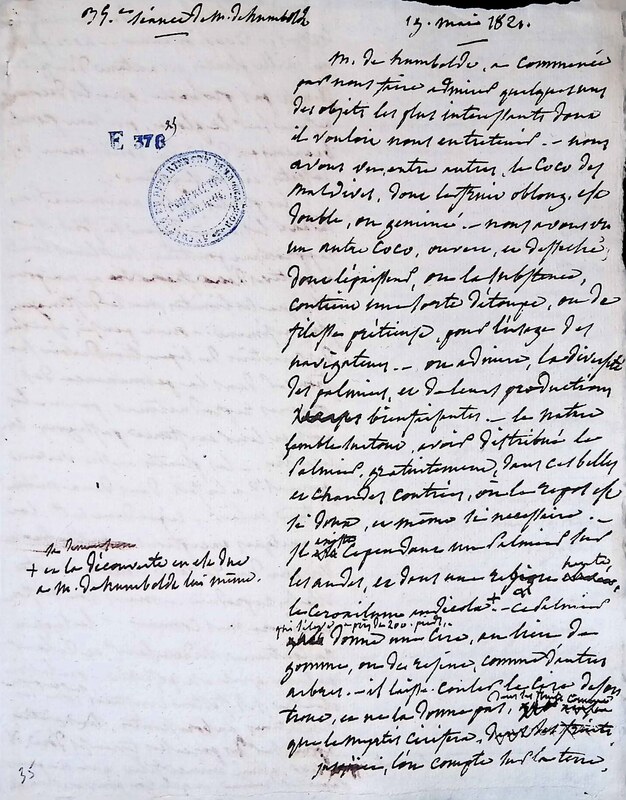 35.e séance de M. de humboldt
19. mai 1821.
M. de humboldt, a commencé
par nous faire admirer quelques uns
des objets les plus interessants dont
il vouloit nous entretenir. — nous
avons vu entre autres, le Coco des
Maldives, dont la forme oblong. est
double, ou geminée. — nous avons vu
un autre Coco, ouvert, et desseché,
dont l'épaisseur, ou la substance,
contient une sorte d'étoupe, ou de
filasse prétieuse, pour l'usage des
navigateurs. — on admire, la diversité
des palmiers, et de leurs productions
bienfaisantes. — la nature
semble surtout, avoir distribué le
Palmier, gratuitement, dans ces belles
et chaudes contrées, où le repos est
si doux, et même si necessaire. —
Il existe Cependant un Palmier sur
les andes, et dans une region haute,
le Ceroxilum andicola + - ce Palmier
qui s'élève à près de 200. pieds,
donne une Cire, au lieu de
gomme, ou de resine, comme d'autres
arbres. — il laisse couler la cire de son
tronc, et ne la donne pas, dans ses fruits comme
que le Myrtus cerifera,
l'on compte sur la terre,
+ et la découverte en est due
a M. de humboldt lui même.
E 376
35